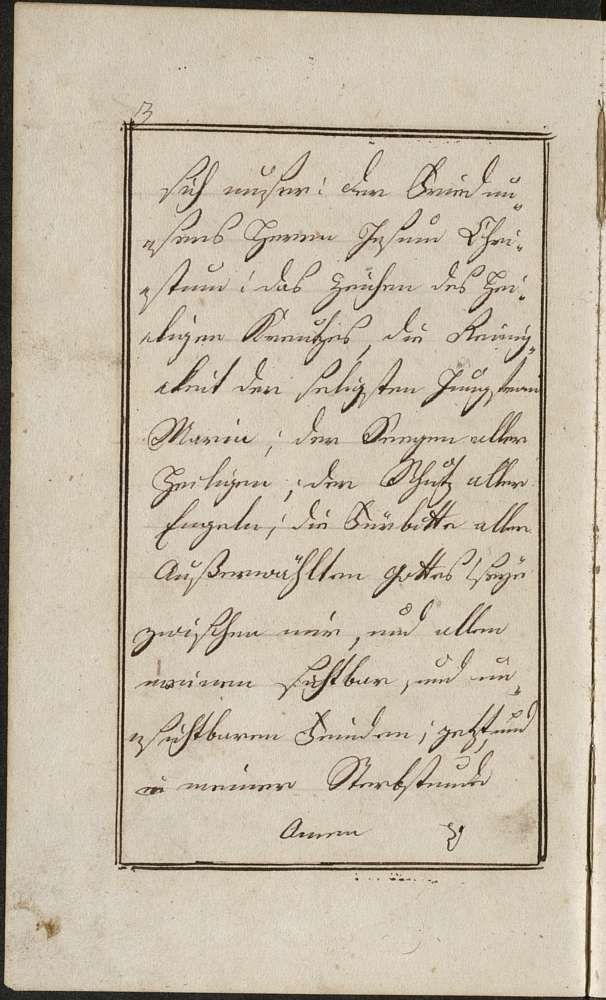 3
sich unser! der Fried un-
sers Herren Jesum Chri-
stum! das Zeichen des Hei-
ligen Kreutzes, die Reinig-
keit der seligsten Jungfrau
Maria, der Seegen aller
Heiligen, der Schutz aller
Engeln, die Fürbitte aller
Außerwählten gottes seye
zwischen mir, und allen
meinen sichtbar, und un-
sichtbaren Feinden, jetzt und
in meiner Sterbstunde
Amen